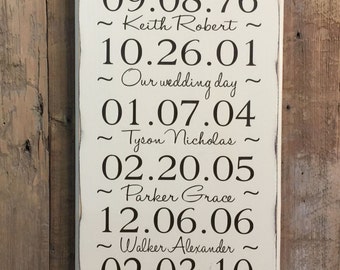 09.08.76
~ Keith Robert ~
10.26.01
~ Our wedding day ~
01.07.04
~ Tyson Nicholas ~
02.20.05
~ Parker Grace ~
12.06.06
~ Walker Alexander ~